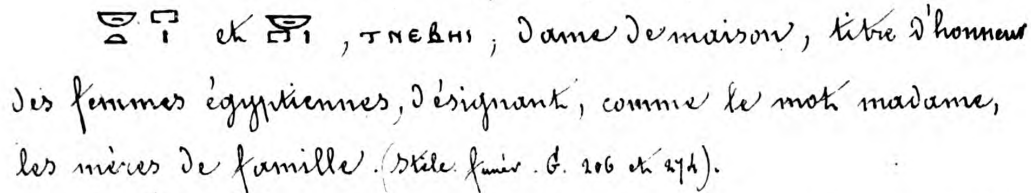 𓎟𓏏 𓉐𓏤 et 𓎟𓏏𓉐𓏤, ⲧⲛⲉⲃⲏⲓ, Dame de maison, titre d'honneur
des femmes égyptiennes, désignant, comme le mot madame,
les mères de famille. (Stèle funér. G. 206 et 274).